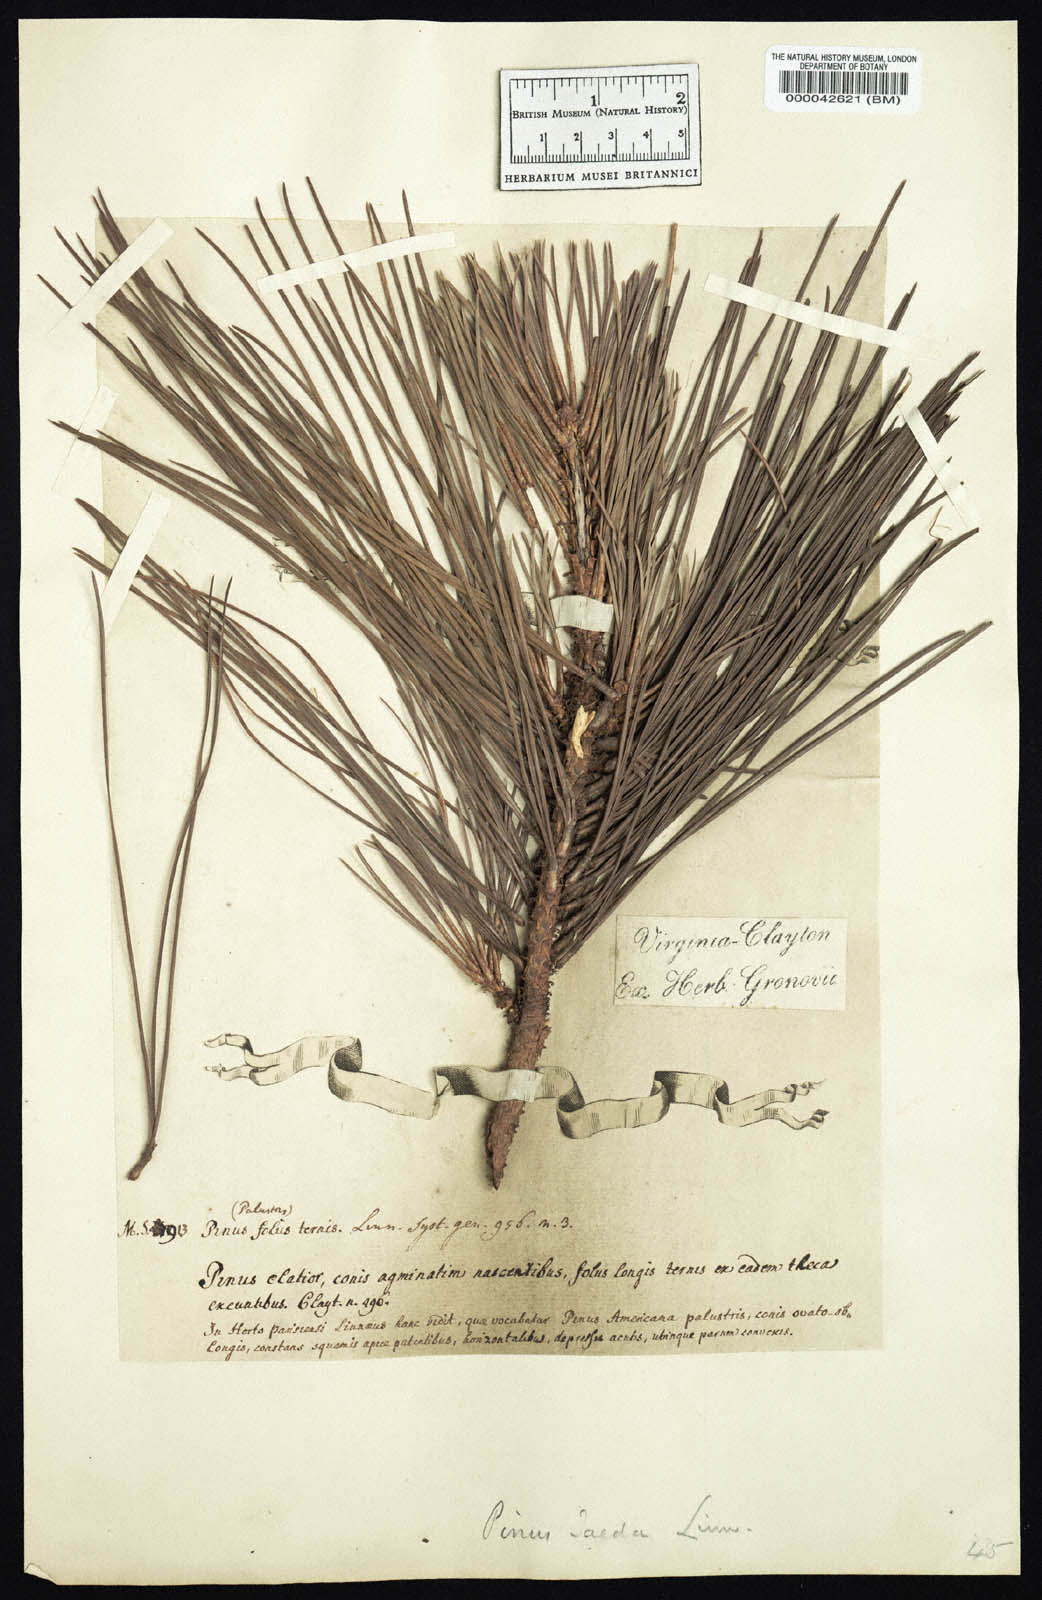 THE NATURAL HISTORY MUSEUM, LONDON
DEPARTMENT OF BOTANY
000042621 (BM)
1 2
BRITISH MUSEUM (NATURAL HISTORY)
1 2 3 4 5
HERBARIUM MUSEI BRITANNICI
Virginia-Clayton
Ex Herb. Gronovii
(Palustris)
Pinus foliis ternis. Linn. Syst. gen. 956. n. 3.
Pinus elatior, conis agminatim nascentibus, foliis longis ternis ex eadem theca
exeuntibus. Clayt. n. 496.
In Horto parisiensi Linnæus hanc vidit, quæ vocabatur Pinus Americana palustris, conis ovato-ob-
longis, constans squamis apice patentibus, horizontalibus, depressis acutis, ubinque parum convexis.
Pinus Taeda Linn.
45